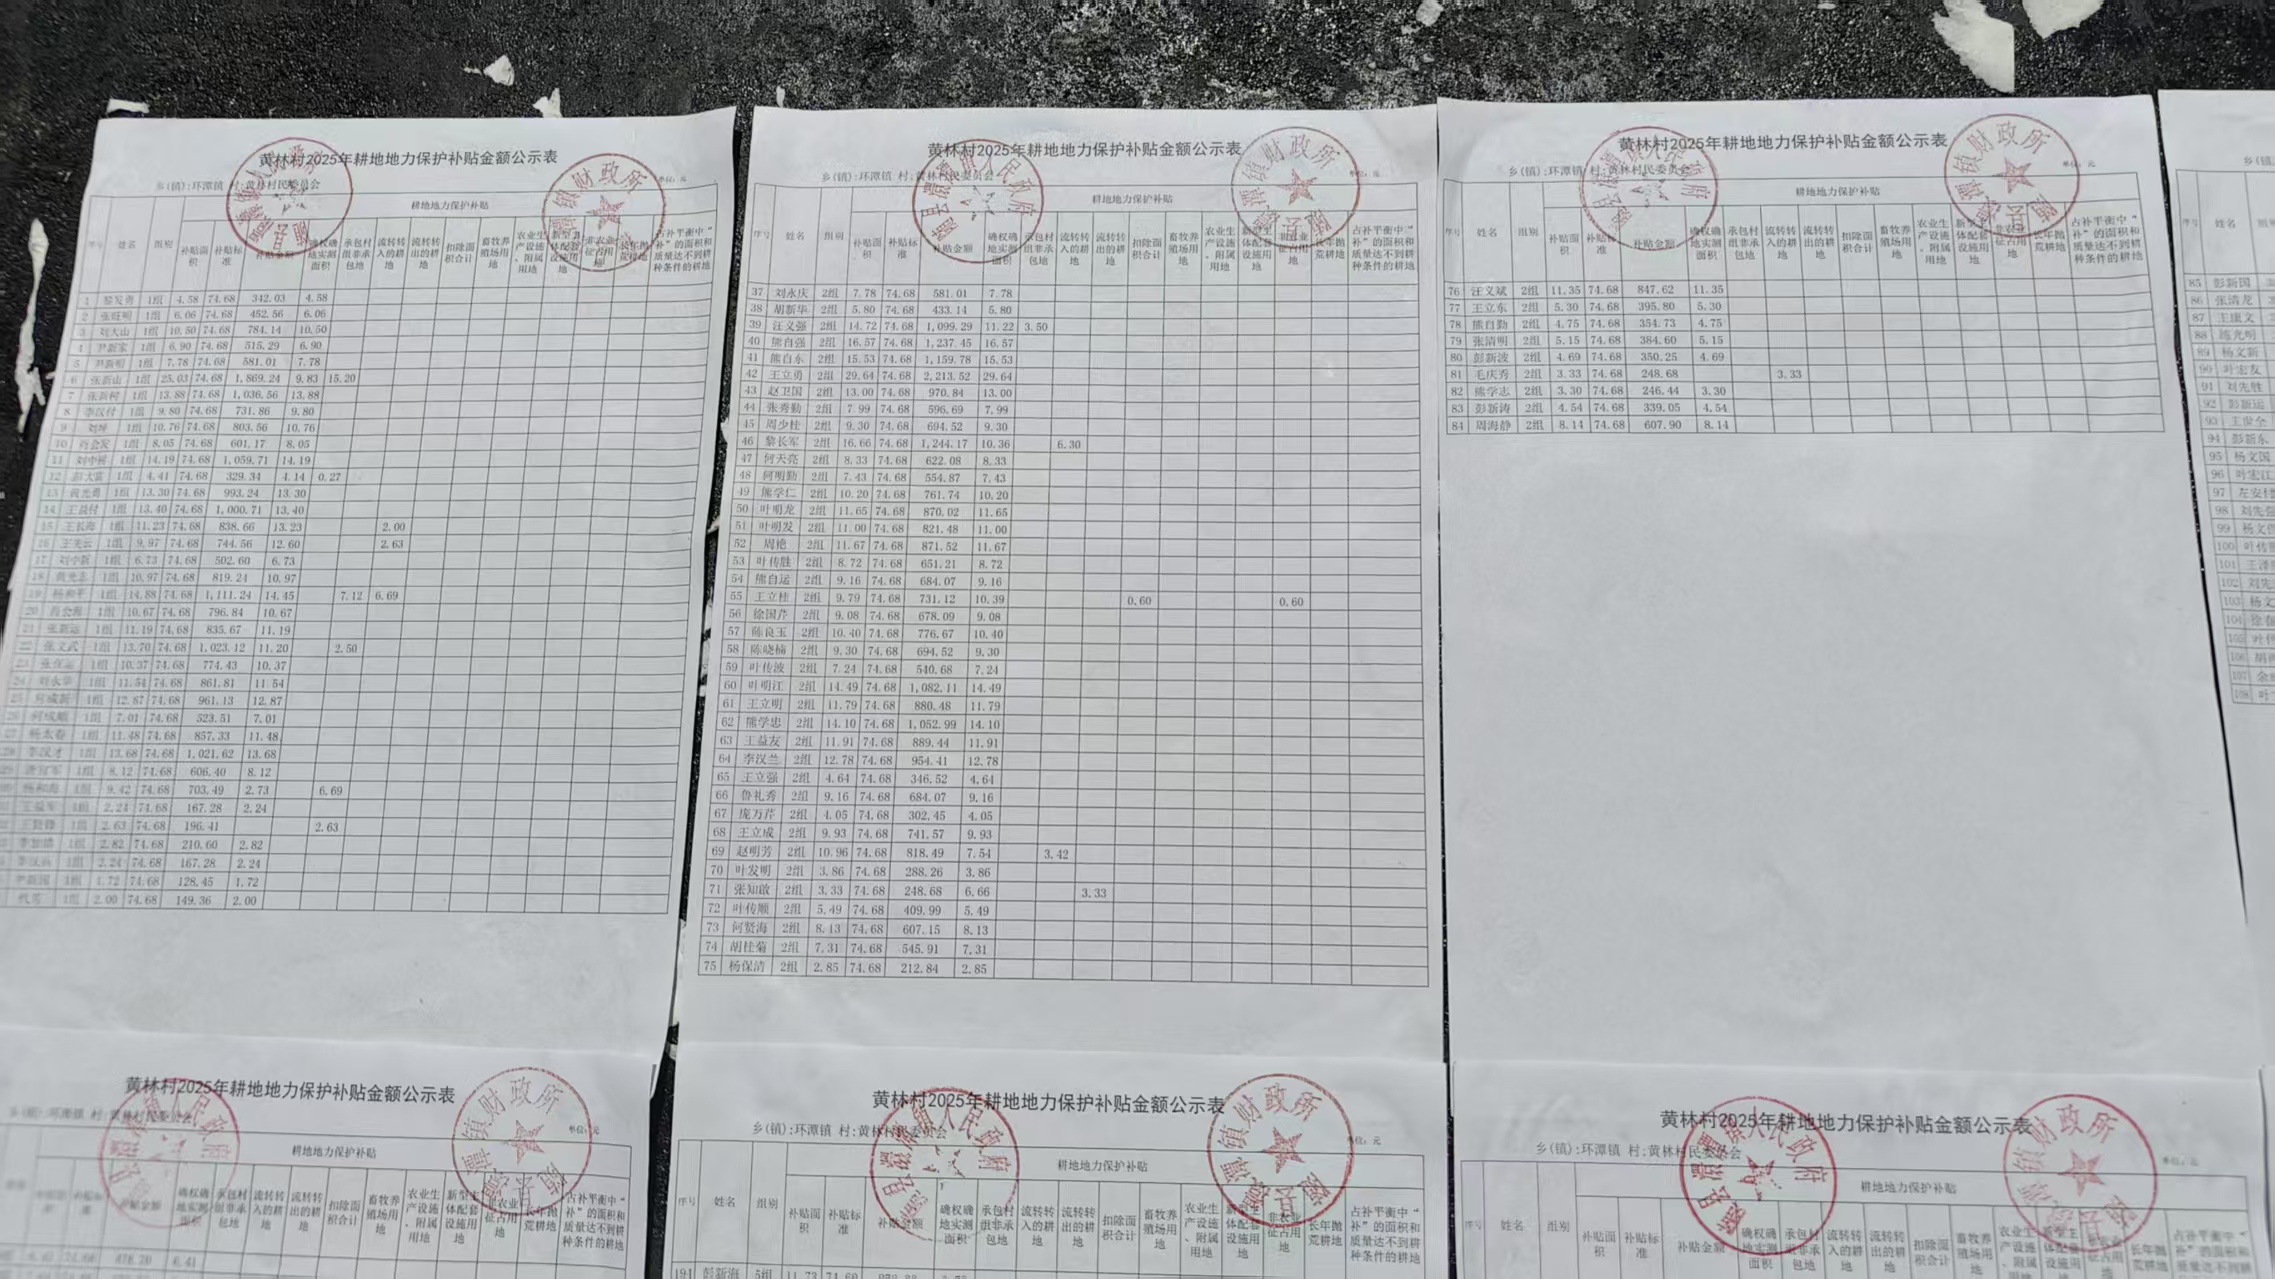 黄林村2025年耕地地力保护补贴金额公示表
乡(镇):环潭镇 村:黄林村民委员会
单位: 元
耕地地力保护补贴
序号 姓名 组别 补贴面积 补贴标准 补贴金额 确权确地实测面积 承包村组非承包地 流转转入的耕地 流转转出的耕地 扣除面积合计 畜牧养殖场用地 农业生产设施、附属用地 新型主体配套设施用地 非农业征占用地 长年抛荒耕地 占补平衡中“补”的面积和质量达不到耕种条件的耕地
1 黎发勇 1组 4.58 74.68 342.03 4.58
2 张旺明 1组 6.06 74.68 452.56 6.06
3 刘大山 1组 10.50 74.68 784.14 10.50
4 尹新家 1组 6.90 74.68 515.29 6.90
5 尹新明 1组 7.78 74.68 581.01 7.78
6 张新山 1组 25.03 74.68 1,869.24 9.83 15.20
7 张新树 1组 13.88 74.68 1,036.56 13.88
8 李汉付 1组 9.80 74.68 731.86 9.80
9 刘坤 1组 10.76 74.68 803.56 10.76
10 1组 8.05 74.68 601.17 8.05
11 刘中树 1组 14.19 74.68 1,059.71 14.19
12 1组 4.41 74.68 329.34 4.14 0.27
13 黄光勇 1组 13.30 74.68 993.24 13.30
14 王益付 1组 13.40 74.68 1,000.71 13.40
15 王长海 1组 11.23 74.68 838.66 13.23 2.00
16 王先云 1组 9.97 74.68 744.56 12.60 2.63
17 刘中新 1组 6.73 74.68 502.60 6.73
18 黄光志 1组 10.97 74.68 819.24 10.97
19 杨和平 1组 14.88 74.68 1,111.24 14.45 7.12 6.69
20 1组 10.67 74.68 796.84 10.67
21 张新运 1组 11.19 74.68 835.67 11.19
22 张文武 1组 13.70 74.68 1,023.12 11.20 2.50
23 1组 10.37 74.68 774.43 10.37
24 刘永华 1组 11.54 74.68 861.81 11.54
25 何成新 1组 12.87 74.68 961.13 12.87
26 何成顺 1组 7.01 74.68 523.51 7.01
27 杨太春 1组 11.48 74.68 857.33 11.48
28 李汉才 1组 13.68 74.68 1,021.62 13.68
1组 8.12 74.68 606.40 8.12
杨和海 1组 9.42 74.68 703.49 2.73 6.69
王益军 1组 2.24 74.68 167.28 2.24
1组 2.63 74.68 196.41 2.63
1组 2.82 74.68 210.60 2.82
1组 2.24 74.68 167.28 2.24
尹新国 1组 1.72 74.68 128.45 1.72
1组 2.00 74.68 149.36 2.00
黄林村2025年耕地地力保护补贴金额公示表
乡(镇):环潭镇 村:黄林村民委员会
耕地地力保护补贴
序号 姓名 组别 补贴面积 补贴标准 补贴金额 确权确地实测面积 承包村组非承包地 流转转入的耕地 流转转出的耕地 扣除面积合计 畜牧养殖场用地 农业生产设施、附属用地 新型主体配套设施用地 非农业征占用地 长年抛荒耕地 占补平衡中“补”的面积和质量达不到耕种条件的耕地
37 刘永庆 2组 7.78 74.68 581.01 7.78
38 胡新华 2组 5.80 74.68 433.14 5.80
39 汪义强 2组 14.72 74.68 1,099.29 11.22 3.50
40 熊自强 2组 16.57 74.68 1,237.45 16.57
41 熊自东 2组 15.53 74.68 1,159.78 15.53
42 王立勇 2组 29.64 74.68 2,213.52 29.64
43 赵卫国 2组 13.00 74.68 970.84 13.00
44 张秀勤 2组 7.99 74.68 596.69 7.99
45 周少桂 2组 9.30 74.68 694.52 9.30
46 黎长军 2组 16.66 74.68 1,244.17 10.36 6.30
47 何天亮 2组 8.33 74.68 622.08 8.33
48 何明勤 2组 7.43 74.68 554.87 7.43
49 熊学仁 2组 10.20 74.68 761.74 10.20
50 叶明龙 2组 11.65 74.68 870.02 11.65
51 叶明发 2组 11.00 74.68 821.48 11.00
52 周艳 2组 11.67 74.68 871.52 11.67
53 叶传胜 2组 8.72 74.68 651.21 8.72
54 熊自运 2组 9.16 74.68 684.07 9.16
55 王立桂 2组 9.79 74.68 731.12 10.39 0.60 0.60
56 徐国芹 2组 9.08 74.68 678.09 9.08
57 陈良玉 2组 10.40 74.68 776.67 10.40
58 陈晓楠 2组 9.30 74.68 694.52 9.30
59 叶传波 2组 7.24 74.68 540.68 7.24
60 叶明江 2组 14.49 74.68 1,082.11 14.49
61 王立明 2组 11.79 74.68 880.48 11.79
62 熊学忠 2组 14.10 74.68 1,052.99 14.10
63 王益友 2组 11.91 74.68 889.44 11.91
64 李汉兰 2组 12.78 74.68 954.41 12.78
65 王立强 2组 4.64 74.68 346.52 4.64
66 鲁礼秀 2组 9.16 74.68 684.07 9.16
67 庞万芹 2组 4.05 74.68 302.45 4.05
68 王立成 2组 9.93 74.68 741.57 9.93
69 赵明芳 2组 10.96 74.68 818.49 7.54 3.42
70 叶发明 2组 3.86 74.68 288.26 3.86
71 张知敏 2组 3.33 74.68 248.68 6.66 3.33
72 叶传顺 2组 5.49 74.68 409.99 5.49
73 何贤海 2组 8.13 74.68 607.15 8.13
74 胡桂菊 2组 7.31 74.68 545.91 7.31
75 杨保清 2组 2.85 74.68 212.84 2.85
黄林村2025年耕地地力保护补贴金额公示表
乡(镇):环潭镇 村:黄林村民委员会
单位: 元
耕地地力保护补贴
序号 姓名 组别 补贴面积 补贴标准 补贴金额 确权确地实测面积 承包村组非承包地 流转转入的耕地 流转转出的耕地 扣除面积合计 畜牧养殖场用地 农业生产设施、附属用地 新型主体配套设施用地 非农业征占用地 长年抛荒耕地 占补平衡中“补”的面积和质量达不到耕种条件的耕地
76 汪义斌 2组 11.35 74.68 847.62 11.35
77 王立东 2组 5.30 74.68 395.80 5.30
78 熊自勤 2组 4.75 74.68 354.73 4.75
79 张清明 2组 5.15 74.68 384.60 5.15
80 彭新波 2组 4.69 74.68 350.25 4.69
81 毛庆秀 2组 3.33 74.68 248.68 3.33
82 熊学志 2组 3.30 74.68 246.44 3.30
83 彭新涛 2组 4.54 74.68 339.05 4.54
84 周海静 2组 8.14 74.68 607.90 8.14
乡(镇)
序号 姓名
85 彭新国
86 张清龙
87 王康文
88 陈光明
89 杨文新
90 叶宏友
91 刘先胜
92 彭新运
93 王世全
94 彭新东
95 杨文国
96 叶宏江
97 左安
98 刘先
99 杨文
100 叶传
101 王泽
102 刘先
103 杨文
104 徐
105 叶传
106 胡
107 余
108 叶
黄林村2025年耕地地力保护补贴金额公示表
乡(镇):环潭镇 村:黄林村民委员会
单位: 元
耕地地力保护补贴
补贴金额 确权确地实测面积 承包村组非承包地 流转转入的耕地 流转转出的耕地 扣除面积合计 畜牧养殖场用地 农业生产设施、附属用地 新型主体配套设施用地 非农业征占用地 长年抛荒耕地 占补平衡中“补”的面积和质量达不到耕种条件的耕地
74.68 478.70 6.41
黄林村2025年耕地地力保护补贴金额公示表
乡(镇):环潭镇 村:黄林村民委员会
单位: 元
耕地地力保护补贴
序号 姓名 组别 补贴面积 补贴标准 补贴金额 确权确地实测面积 承包村组非承包地 流转转入的耕地 流转转出的耕地 扣除面积合计 畜牧养殖场用地 农业生产设施、附属用地 新型主体配套设施用地 非农业征占用地 长年抛荒耕地 占补平衡中“补”的面积和质量达不到耕种条件的耕地
194 彭新海 5组 11.73 74.68
黄林村2025年耕地地力保护补贴金额公示表
乡(镇):环潭镇 村:黄林村民委员会
单位: 元
耕地地力保护补贴
序号 姓名 组别 补贴面积 补贴标准 补贴金额 确权确地实测面积 承包村组非承包地 流转转入的耕地 流转转出的耕地 扣除面积合计 畜牧养殖场用地 农业生产设施、附属用地 新型主体配套设施用地 非农业征占用地 长年抛荒耕地 占补平衡中“补”的面积和质量达不到耕种条件的耕地